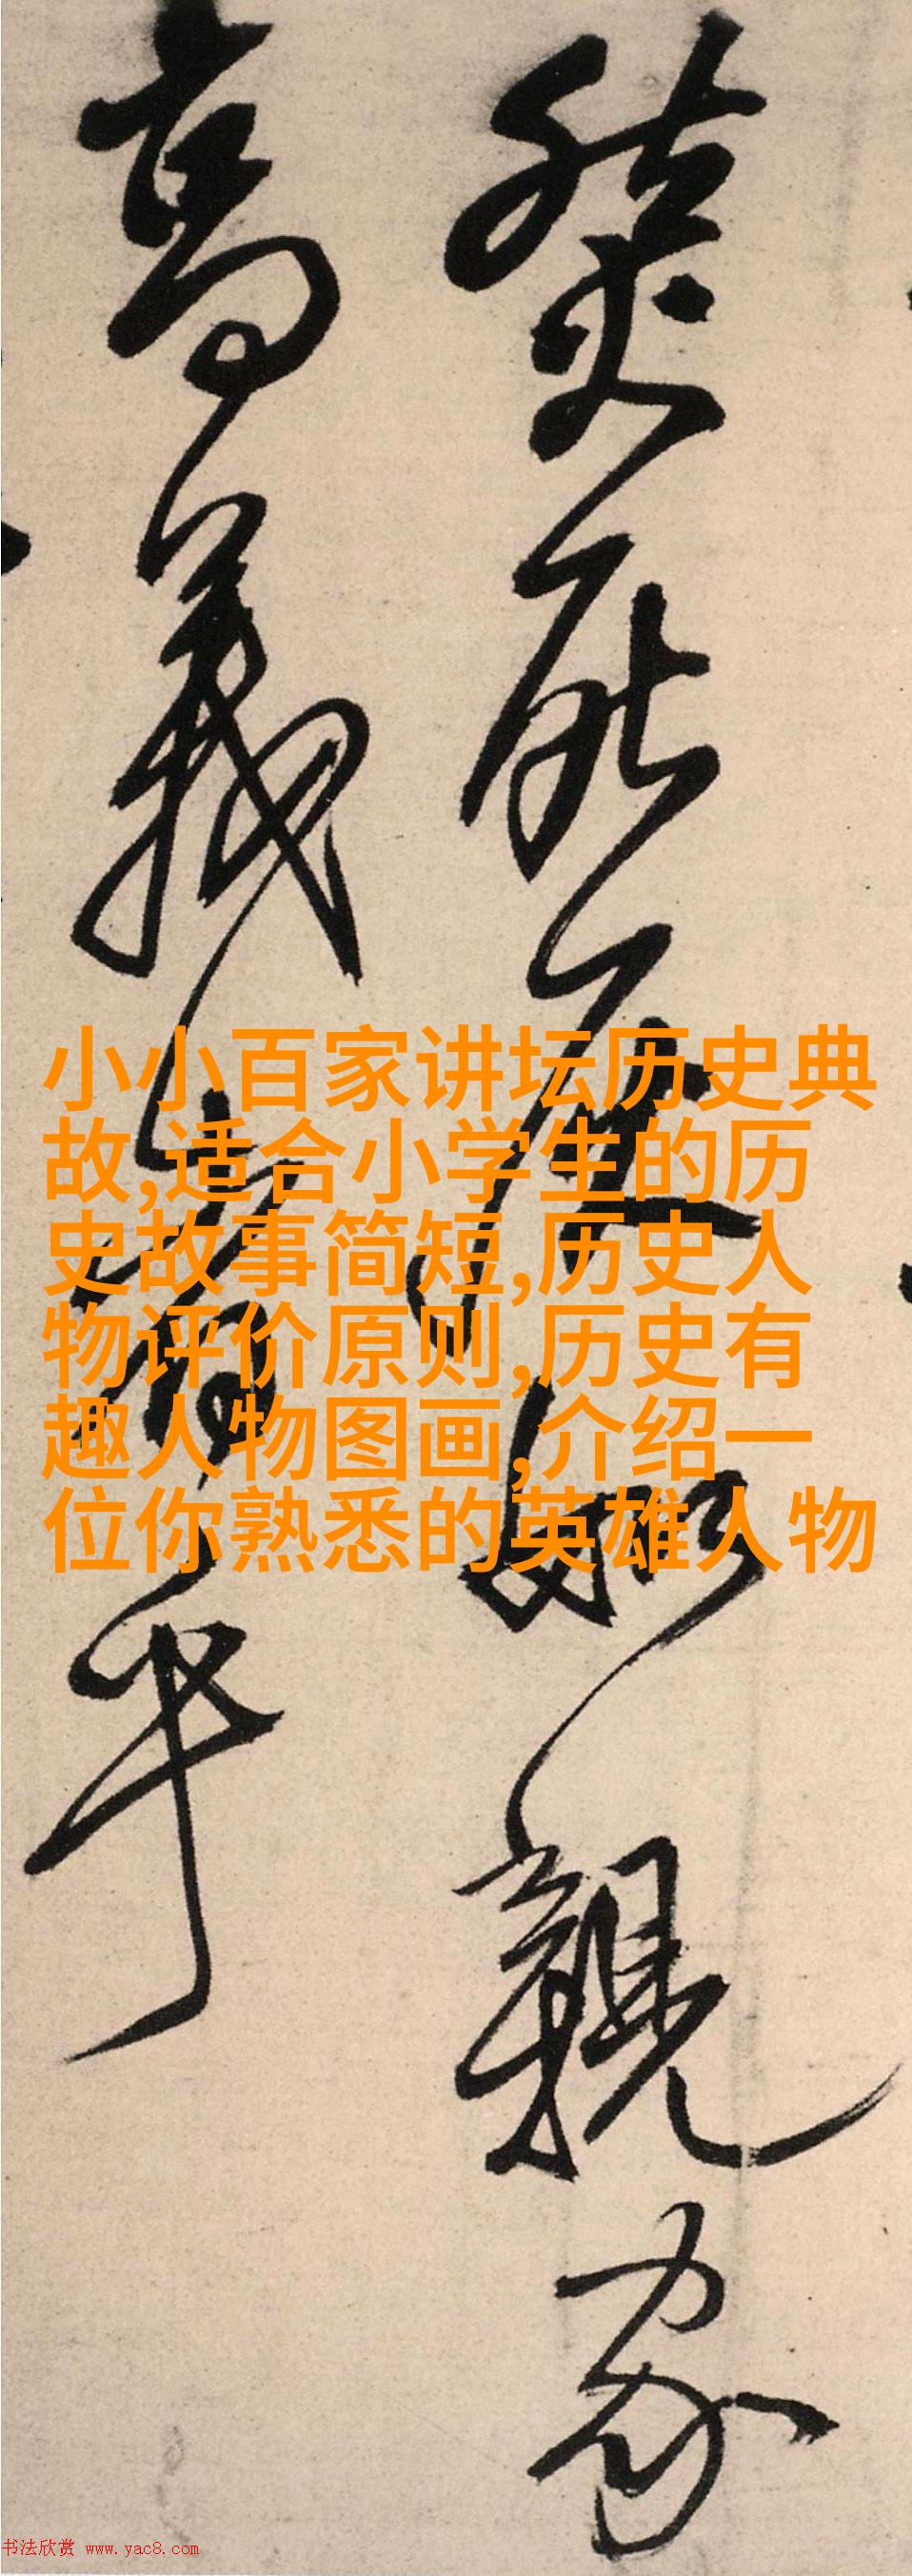 小小百家讲坛历史典
故,适合小学生的历
史故事简短,历史人
物评价原则,历史有
趣人物图画,介绍一
位你熟悉的英雄人物
如親家
高義
书法欣赏 www.yac8.com